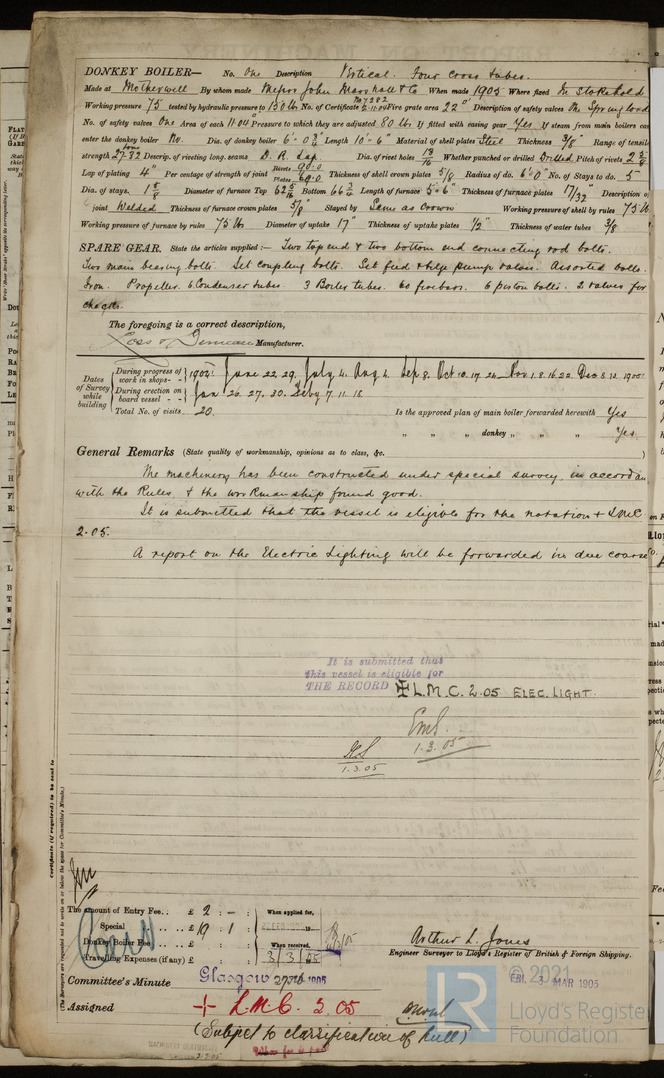 DONKEY BOILER— No. One Description Vertical. Four cross tubes.
Made at Motherwell By whom made Messrs John Marshall & Co When made 1905 Where fixed In Stokehold
Working pressure 75 tested by hydraulic pressure to 150 lbs No. of Certificate 7282 Fire grate area 22 □' Description of safety valves One Spring load
No. of safety valves One Area of each 11.04 Pressure to which they are adjusted 80 lbs If fitted with easing gear Yes If steam from main boilers can
enter the donkey boiler No. Dia. of donkey boiler 6'-0 3/4" Length 10'-6" Material of shell plates Steel Thickness 3/8" Range of tensile
strength 27-32 tons Descrip. of riveting long. seams D. R. Lap. Dia. of rivet holes 13/16 Whether punched or drilled Drilled Pitch of rivets 2 5/8
Lap of plating 4" Per centage of strength of joint Rivets 90.0 Plates 69.0 Thickness of shell crown plates 5/8 Radius of do. 6'0" No. of Stays to do. 5
Dia. of stays. 1 5/8 Diameter of furnace Top 62 5/16 Bottom 66 3/4 Length of furnace 5'-6" Thickness of furnace plates 17/32" Description of
joint Welded Thickness of furnace crown plates 5/8" Stayed by Same as Crown Working pressure of shell by rules 75 lb
Working pressure of furnace by rules 75 lb Diameter of uptake 17" Thickness of uptake plates 1/2" Thickness of water tubes 3/8
SPARE GEAR. State the articles supplied:— Two top end & two bottom end connecting rod bolts.
Two main bearing bolts. Set coupling bolts. Set feed & bilge pump valves. Assorted bolts.
Iron. Propeller. 6 Condenser tubes. 3 Boiler tubes. 60 firebars. 6 piston bolts. 2 valves for
checks.
The foregoing is a correct description,
Ross & Duncan Manufacturer.
Dates of Survey while building
During progress of work in shops - - 1904: June 22. 29. July 4. Aug 4. Sep 8. Oct 10. 17. 24. Nov 1. 8. 16. 22. Dec 8. 12. 1905:
During erection on board vessel - - Jan 26. 27. 30. Feby 7. 11. 18.
Total No. of visits 20.
Is the approved plan of main boiler forwarded herewith Yes
" " " donkey " " " Yes.
General Remarks (State quality of workmanship, opinions as to class, &c.
The machinery has been constructed under special survey in accordan
with the Rules, & the workmanship found good.
It is submitted that the vessel is eligible for the notation + LMC
2.05.
A report on the Electric Lighting will be forwarded in due course.
It is submitted that
this vessel is eligible for
THE RECORD ✠ L.M.C. 2.05 ELEC. LIGHT.
1.3.05
1.3.05
Certificate (if required) to be sent to
(The Surveyors are requested not to write on or below the space for Committee's Minute.)
The amount of Entry Fee.. £ 2 : - : When applied for,
Special .. .. £ 19 : 1 :
Donkey Boiler Fee .. £ : : When received,
Travelling Expenses (if any) £ : : 3/3/05
Arthur L. Jones
Engineer Surveyor to Lloyd's Register of British & Foreign Shipping.
Committee's Minute Glasgow 27 Feb 1905
FRI. 3 MAR 1905
Assigned + L.M.C. 2.05
(Subject to classification of hull)
© 2021
LR Lloyd's Register
Foundation